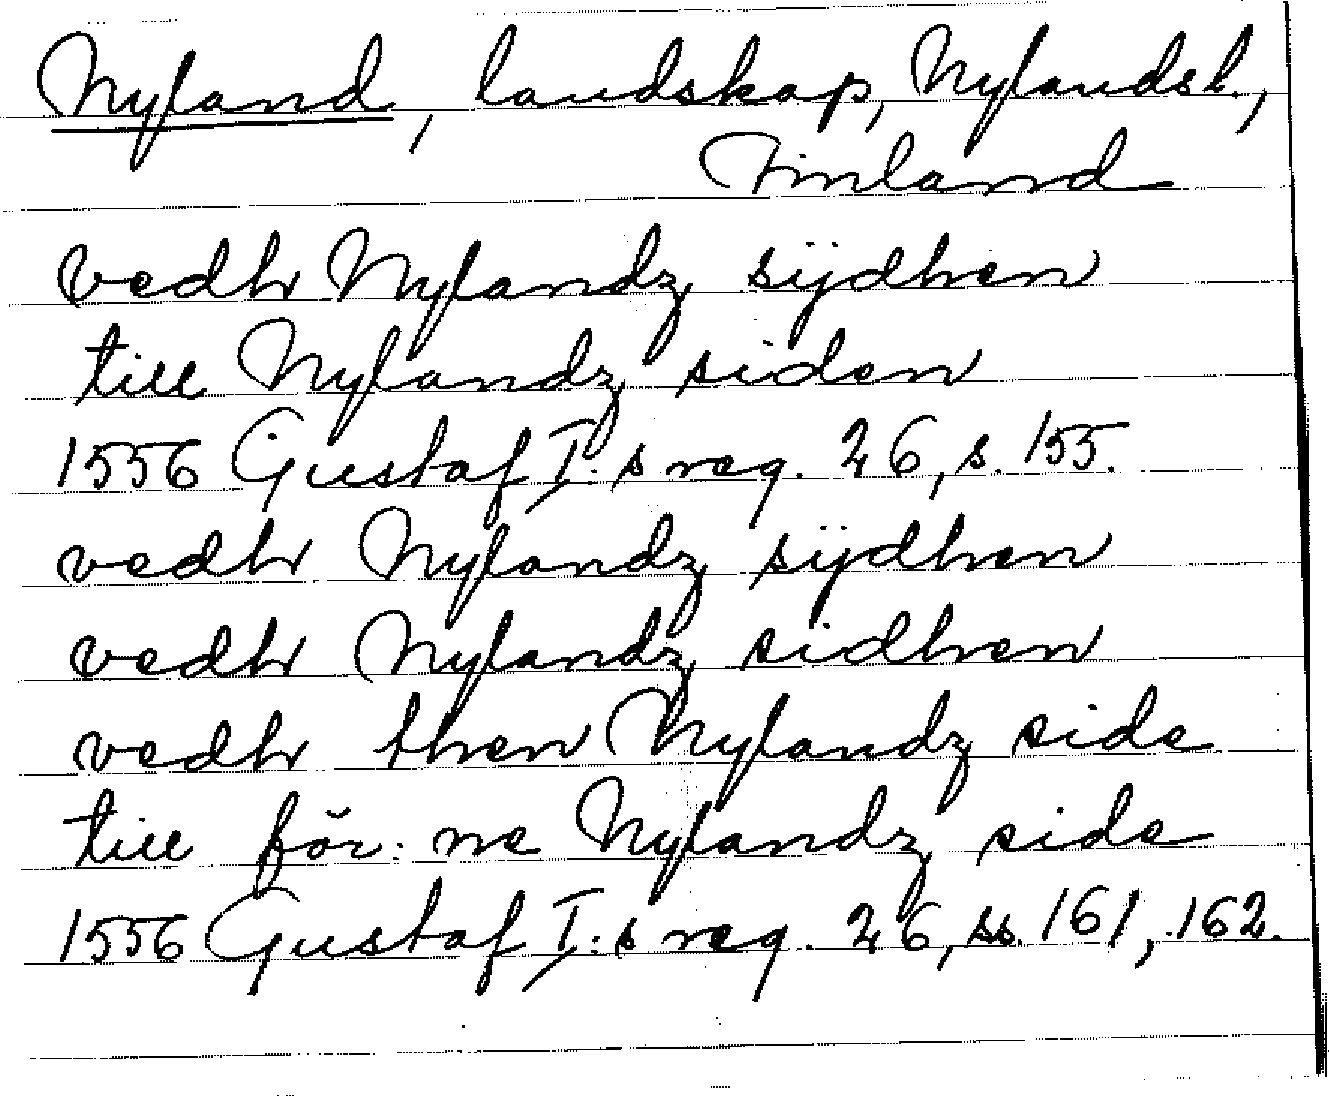 Nyland, landskap, Nylandsl.,
Finland
vedh Nylandz sÿdhen
till Nylandz siden
1556 Gustaf I:s reg. 26, s. 155.
vedh Nylandz sÿdhen
vedh Nylandz sidhen
vedh then Nylandz side
till för:ne Nylandz side
1556 Gustaf I:s reg. 26, ss. 161, 162.